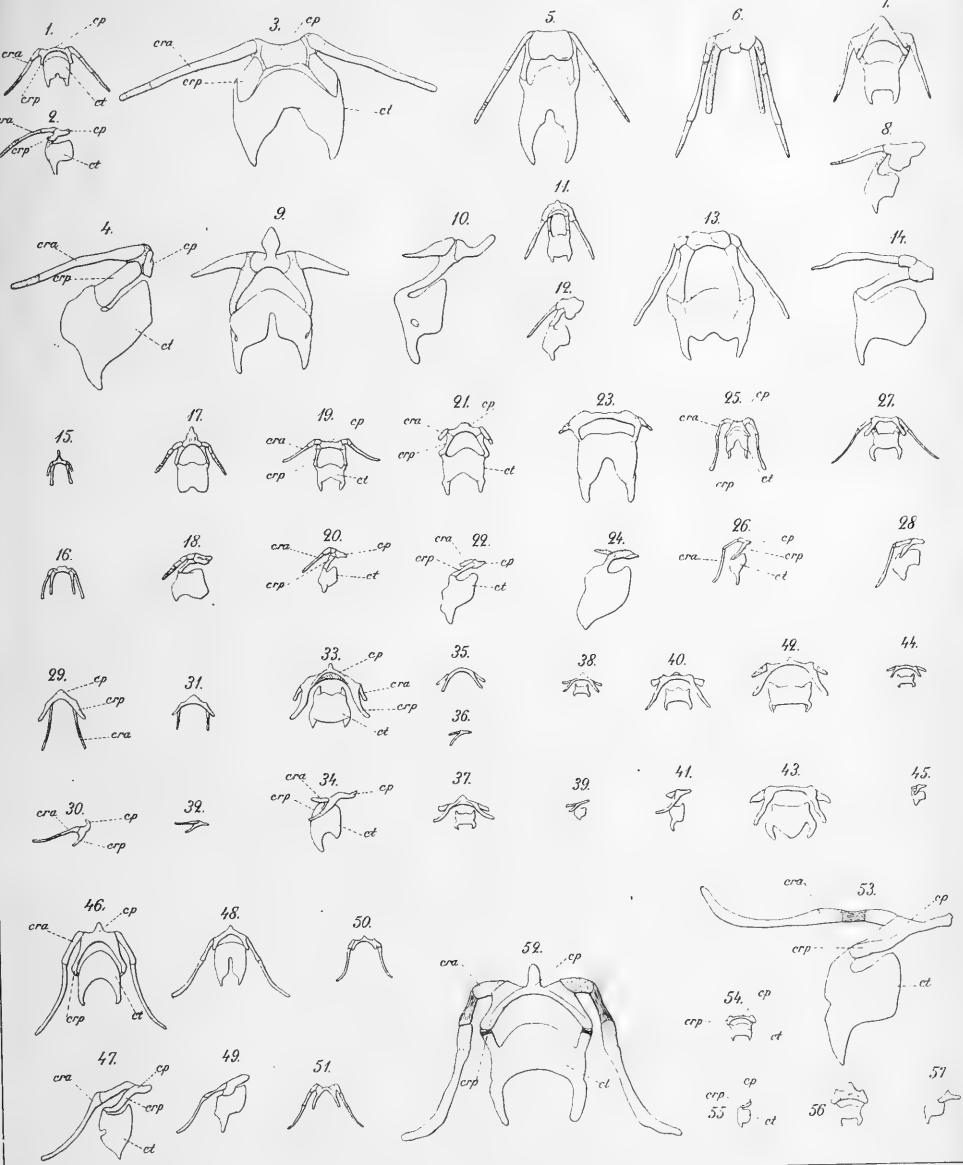 1. cp
cra
crp ct
2.
cra cp
crp
ct
3. cp
cra
crp
ct
5.
6.
7.
8.
4.
cra cp
crp
ct
9.
10.
11.
12.
13.
14.
15.
17.
19. cp
cra
crp
ct
21. cp
cra
crp
ct
23.
25. cp
cra
crp ct
27.
16.
18.
20.
cra cp
crp ct
22.
cra
crp cp
ct
24.
26.
cp
cra crp
ct
28
29. cp
crp
cra
31.
33. cp
cra
crp
ct
35.
36.
38.
40.
42.
44.
30.
cra cp
crp
32.
34.
cra cp
crp
ct
37.
39.
41.
43.
45.
46. cp
cra
crp ct
48.
50.
52. cp
cra
crp ct
53.
cra cp
crp
ct
54. cp
crp
ct
47.
cra cp
crp
ct
49.
51.
55
cp
crp
ct
56
57